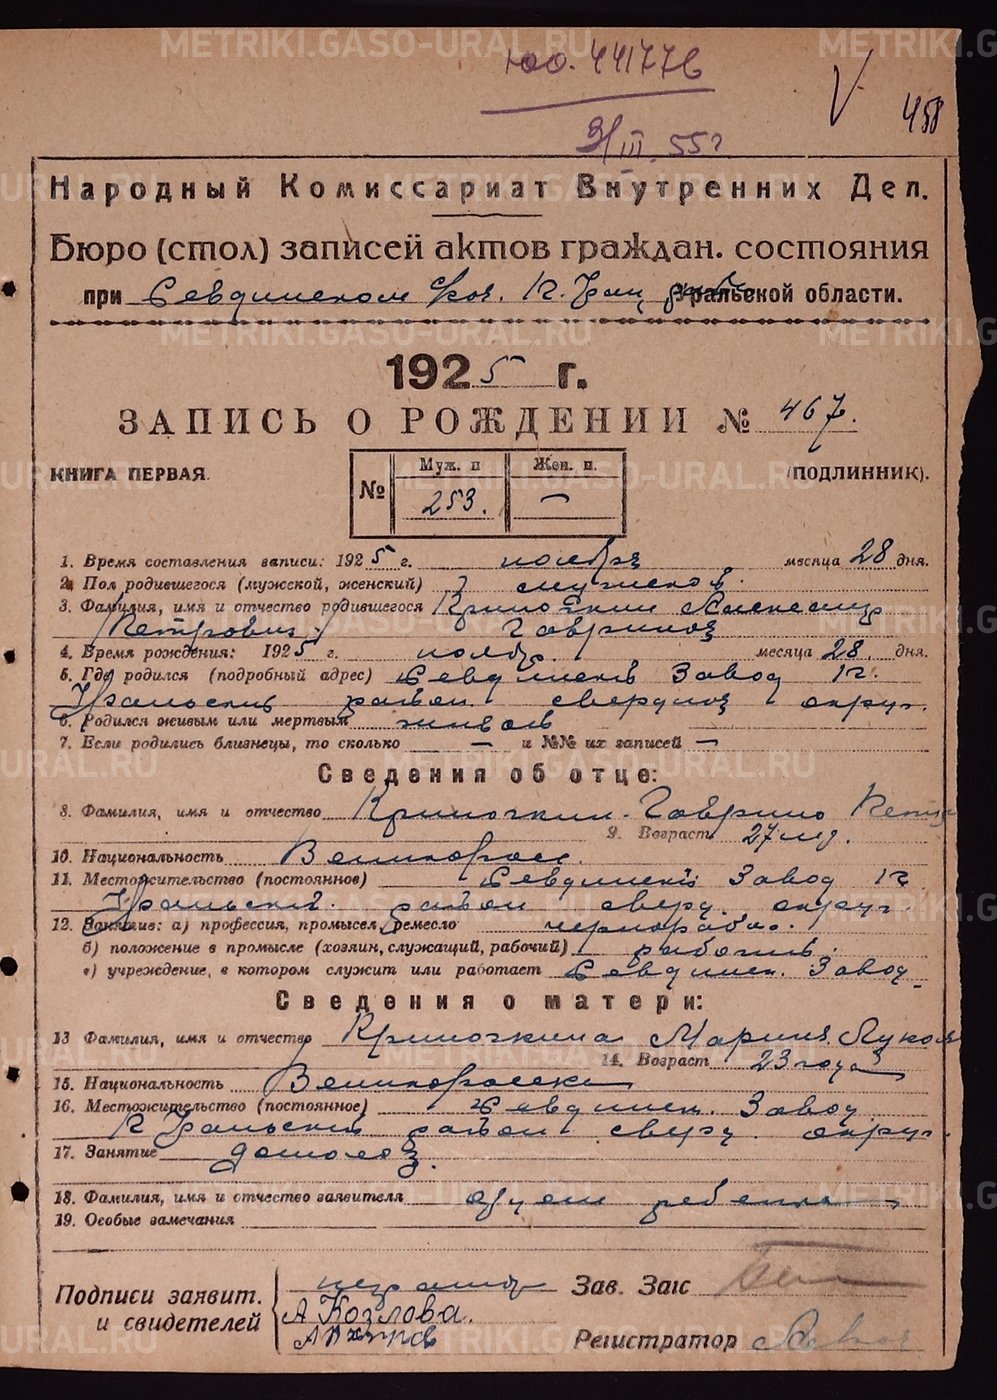 METRIKI.GASO-URAL.RU
Юо. 441776
9/III 55г
V 458
Народный Комиссариат Внутренних Дел.
Бюро (стол) записей актов граждан. состояния
при Ревдинском Уральской области.
1925 г.
ЗАПИСЬ О РОЖДЕНИИ № 467.
КНИГА ПЕРВАЯ. (ПОДЛИННИК).
№ Муж. п 253. Жен. п. —
1. Время составления записи: 1925 г. ноября месяца 28 дня.
2. Пол родившегося (мужской, женский) мужской.
3. Фамилия, имя и отчество родившегося Александр
Петрович Гаврилов
4. Время рождения: 1925 г. ноябр. месяца 28. дня.
5. Где родился (подробный адрес) Ревдинский Завод К.
Уральский район свердлов округ.
6. Родился живым или мертвым живой
7. Если родились близнецы, то сколько — и №№ их записей —
Сведения об отце:
8. Фамилия, имя и отчество Гаврило
9. Возраст 27 лед.
10. Национальность Великоросс.
11. Местожительство (постоянное) Ревдинский Завод К.
Уральский район сверд. округ.
12. Занятие: а) профессия, промысел, ремесло чернораб.
б) положение в промысле (хозяин, служащий, рабочий) рабочий.
в) учреждение, в котором служит или работает Ревдинск. Завод
Сведения о матери:
13 Фамилия, имя и отчество Мария
14. Возраст 23 года
15. Национальность Великоросска
16. Местожительство (постоянное) Ревдинск. Завод
К Уральский район сверд. округ.
17. Занятие домохоз.
18. Фамилия, имя и отчество заявителя отец ребенка
19. Особые замечания
Подписи заявит. и свидетелей
неграмот
А Козлова.
Зав. Загс
Регистратор